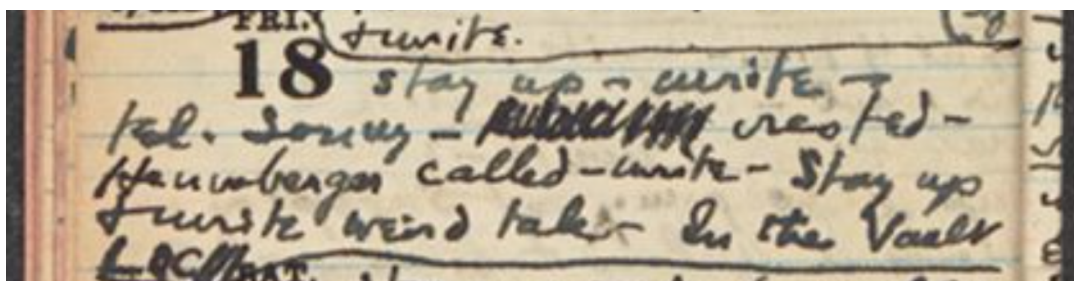 FRI.
& write.
18 stay up - write -
tel. Sonny - rested -
Henneberger called - write - Stay up
& write weird tale - In the Vault
SAT.